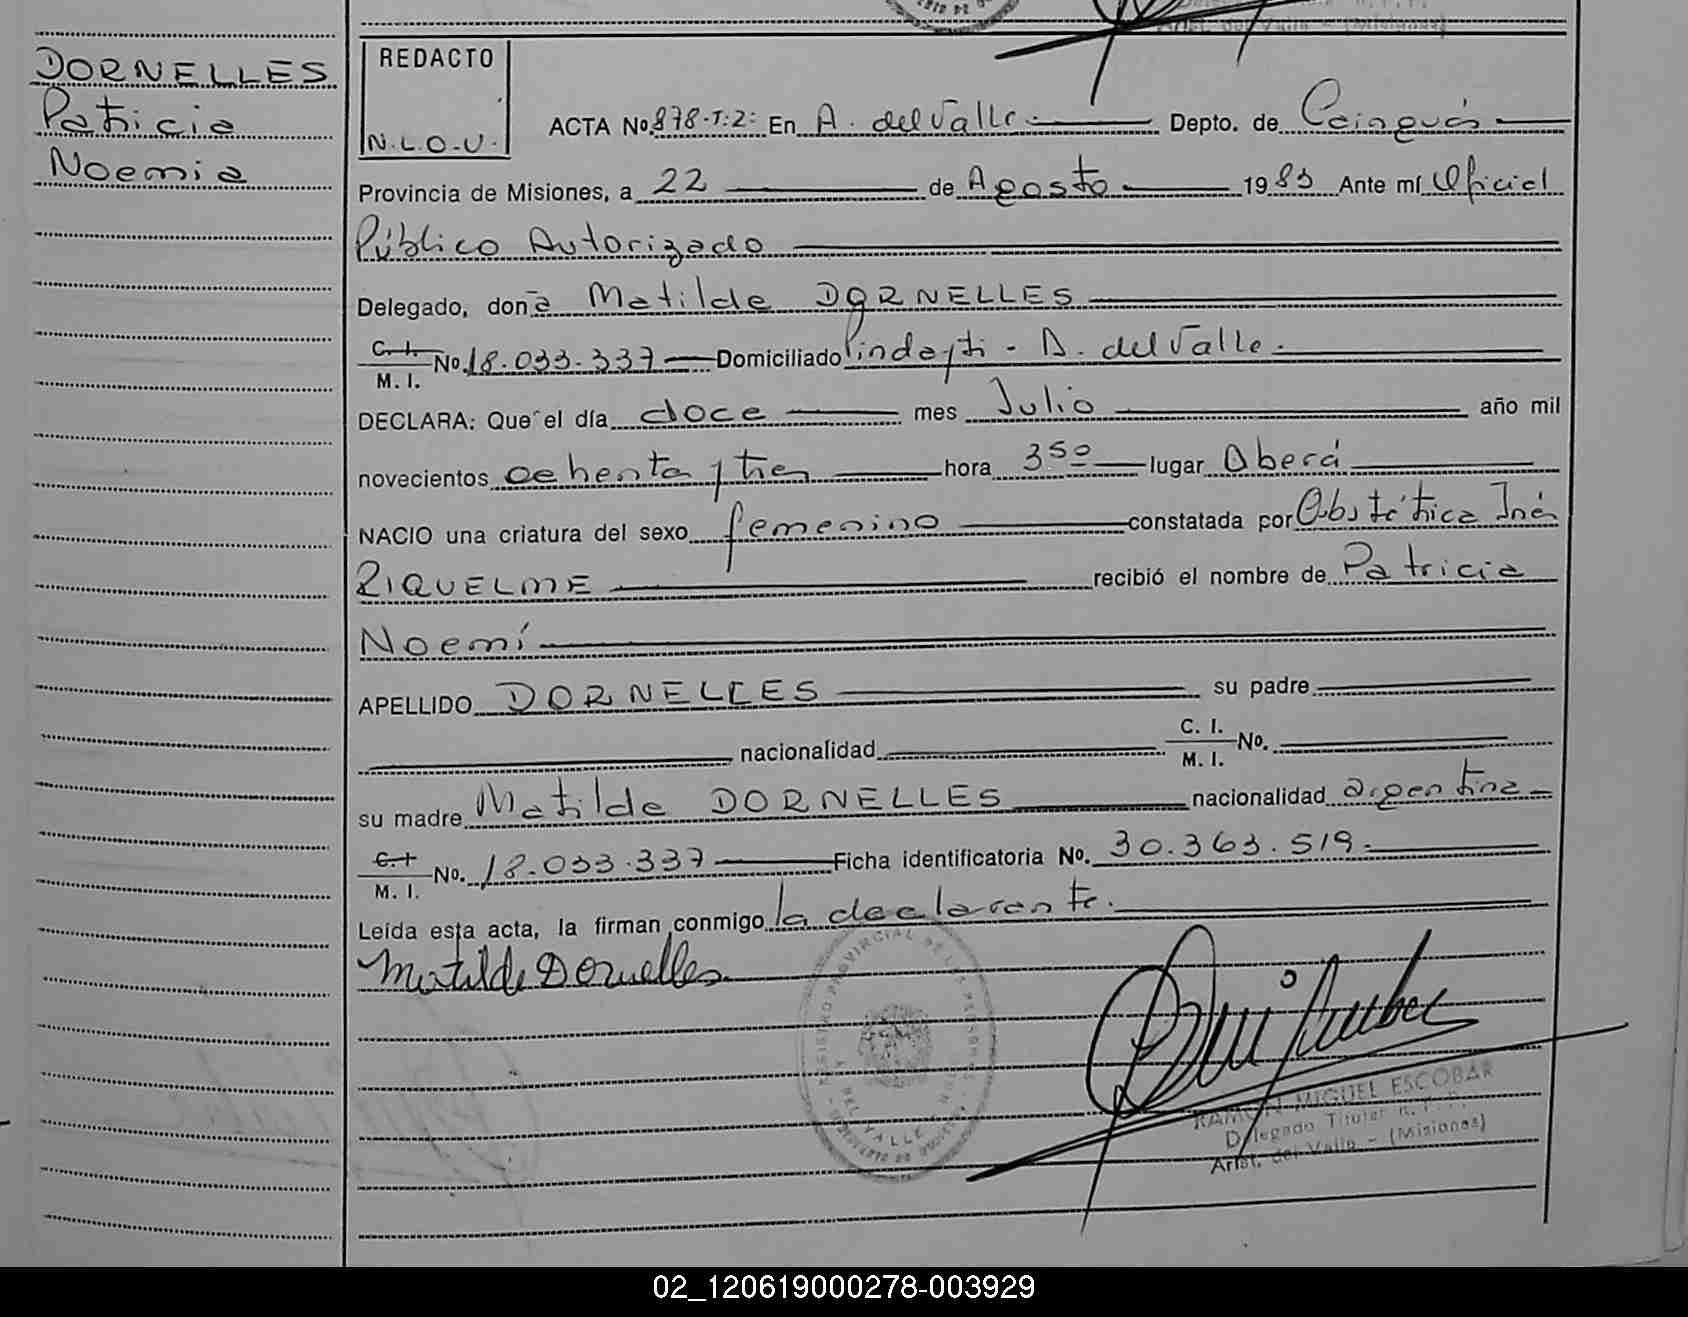 Arist. del Valle - (Misiones)
DORNELLES
Patricia
Noemia
REDACTO
N.L.O.V.
ACTA No. 878-T:2: En A. del Valle Depto. de Cainguás
Provincia de Misiones, a 22 de Agosto 1983 Ante mí Oficial
Público Autorizado
Delegado, donã Matilde DORNELLES
C. I. M. I. No. 18.033.337 Domiciliado Pindayti - A. del Valle.
DECLARA: Que el día doce mes Julio año mil
novecientos ochenta y tres hora 3 50 lugar Oberá
NACIO una criatura del sexo femenino constatada por Obstétrica Inés
RIQUELME recibió el nombre de Patricia
Noemí
APELLIDO DORNELLES su padre
nacionalidad C. I. M. I. No.
su madre Matilde DORNELLES nacionalidad argentina
C. I. M. I. No. 18.033.337 Ficha identificatoria No. 30.363.519.
Leída esta acta, la firman conmigo la declarante.
Matilde Dornelles
REGISTRO PROVINCIAL DE LAS PERSONAS
DEL VALLE
RAMON MIGUEL ESCOBAR
Delegado Titular R. P. P.
Arist. del Valle - (Misiones)
02_120619000278-003929